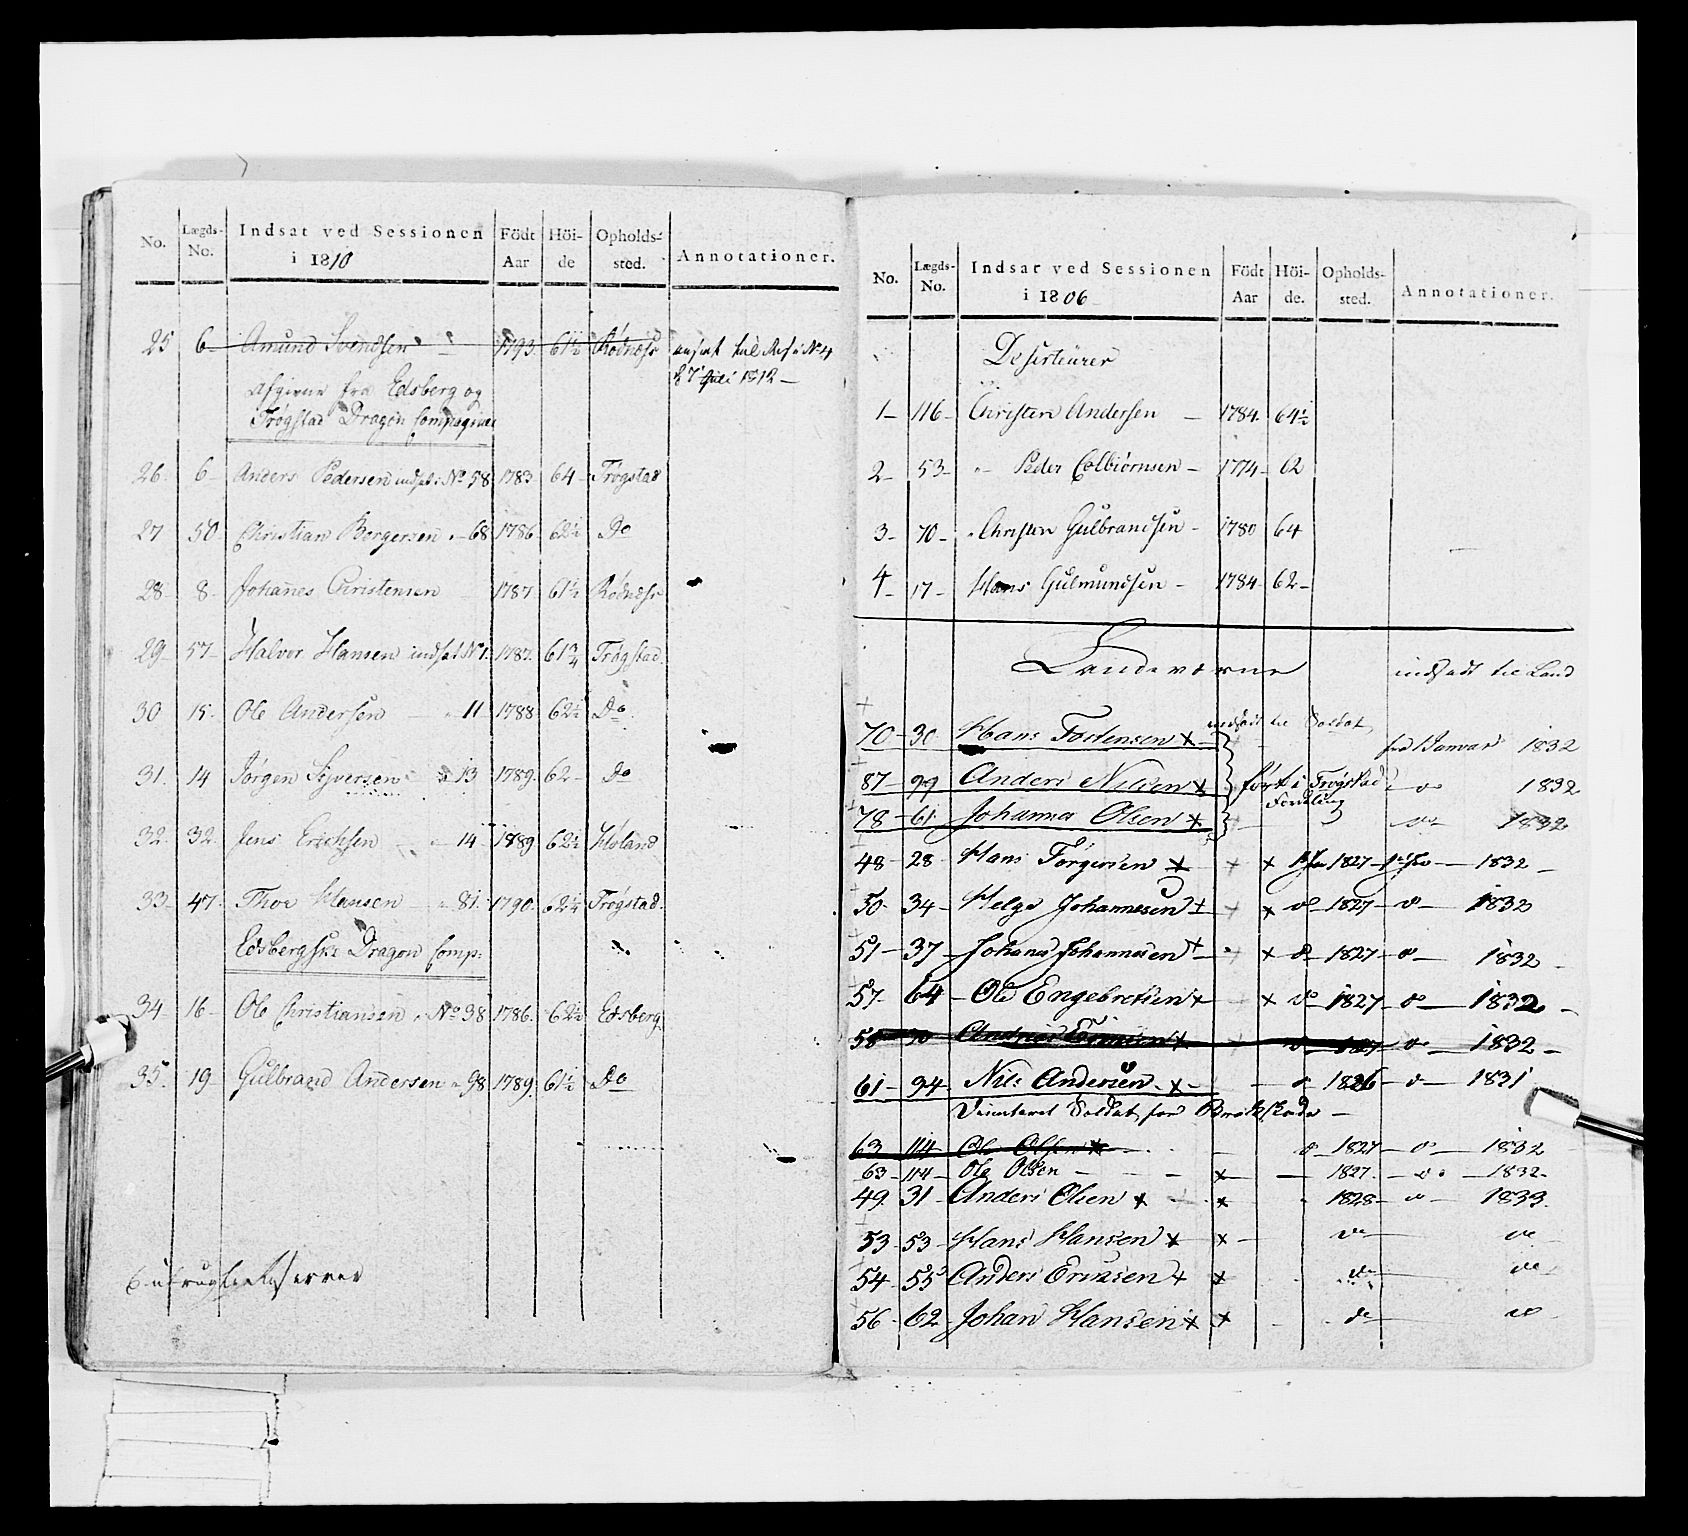 No. Lægds-No. Indsat ved Sessionen i 1810 Födt Aar Höi-de Opholds-sted. Annotationer.
25 6 Amund Svendsen 1793 61½ Rödnæss ansat til Res: No 4
d 7 Juli 1812
Afgivne fra Edsberg og
Trøgstad Dragon Compagnie
26. 6 Anders Pedersen indsat i No 58 1783 64 Trøgstad
27 50 Christian Borgersen 68 1786 62½ Do
28 8 Johannes Christensen 1787 61½ Rödnæss
29 57 Halvor Hansen indsat No 1. 1787. 61¾ Trøgstad
30 15. Ole Andersen 11 1788 62½ Do
31. 14 Jørgen Syversen 13 1789. 62 Do
32. 32. Jens Erichsen 14 1889 62½ Høland
33. 47. Thor Hansen 81. 1790. 62¼ Trøgstad.
Edsbergske Dragon Comp:
34 16 Ole Christiansen No 38 1786. 62½ Edsberg.
35. 19 Gulbrand Andersen 98 1789. 61½ Do
No. Lægds-No. Indsat ved Sessionen i 1806 Födt Aar Höi-de. Opholds-sted. Annotationer.
Deserteurer
1 116 Christen Andersen 1784. 64½
2 53 Peder Colbiörnsen 1774 62
3 70 Christen Gulbrandsen 1780 64
4 17 Hans Gulmundsen 1784 62
Landeværne indsadt til Land
indsadt til Soldat
70 30 Hans Tostensen x fra Januar 1832
87 99 Anders Nilsen x ført i Trøgstad do 1832
78 61. Johannes Olsen x do 1832
48 28 Hans Torgersen x x 1827 1832
50 34 Helge Johannesen x x do 1827 do 1832
51 37 Johanes Johannesen x x do 1827 do 1832
57 64 Ole Engebretsen x x do 1827 do 1832
58 Andreas x do 1827 do 1832
61 94 Nils Andersen x do 1826 do 1831
Soldat for
63 114 Ole Olsen x do 1827 do 1832
63 114 Ole Olsen x 1827. do 1832
49. 31 Anders Olsen x x 1828 do 1833.
53 53 Hans Hansen x x do do
54 55 Anders x x do do
56 62 Johan Hansen x x do do